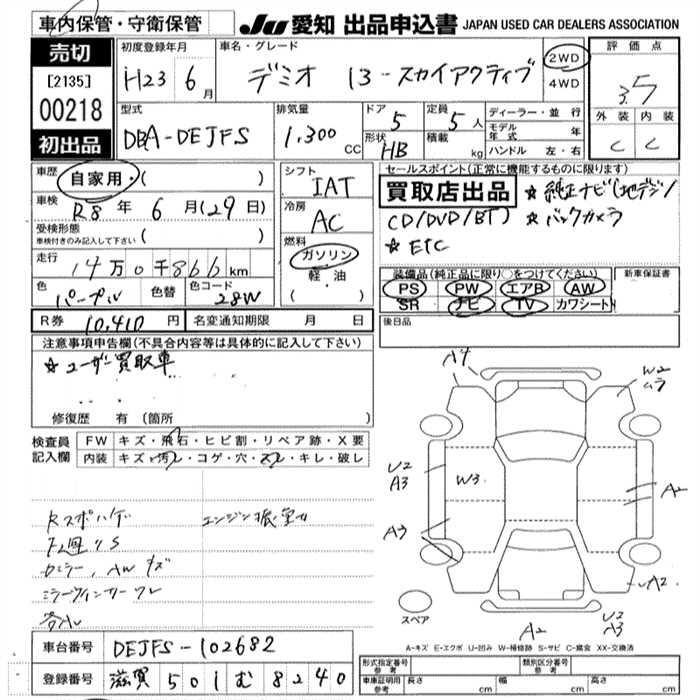 車内保管・守衛保管
JU 愛知 出品申込書 JAPAN USED CAR DEALERS ASSOCIATION
売切
[2135]
00218
初出品
初度登録年月
H23 6月
車名・グレード
デミオ 13-スカイアクティブ
2WD
4WD
評価点
3.5
外装 内装
C C
型式
DBA-DEJFS
排気量
1,300 CC
ドア
5
形状
HB
定員
5人
積載
kg
ディーラー・並行
モデル年式 年
ハンドル 左・右
車歴
自家用・( )
車検
R8年 6月(29日)
受検形態
車検付きのみ記入して下さい ( )
走行
14万0千866km
色
パープル
色替
色コード
28W
シフト
IAT
冷房
AC
燃料
ガソリン
軽・油
・( )
セールスポイント(正常に機能するものに限ります)
買取店出品 ☆純正ナビ(地デジ/
CD/DVD/BT) ☆バックカメラ
☆ETC
装備品(純正品に限り○をつけてください)
PS PW エアB AW
SR ナビ TV カワシート
新車保証書
R券 10,410円
名変通知期限 月 日
後日品
注意事項申告欄(不具合内容等は具体的に記入して下さい)
☆ユーザー買取車
修復歴 有 (箇所 )
検査員記入欄
FW キズ・飛石・ヒビ割・リペア跡・X要
内装 キズ・汚レ・コゲ・穴・スレ・キレ・破レ
Rスポハゲ
エンジン振
ミラーウィンカーワレ
A4
W2
ムラ
U2
A3
W3
A2
A3
A2
A2
U2
A3
スペア
A-キズ E-エクボ U-凹み W-補修跡 S-サビ C-腐食 XX-交換済
車台番号 DEJFS-102682
登録番号 滋賀 501 む 8240
形式指定番号 参考
類別区分番号 参考
車庫証明用 参考
長さ cm
幅 cm
高さ cm